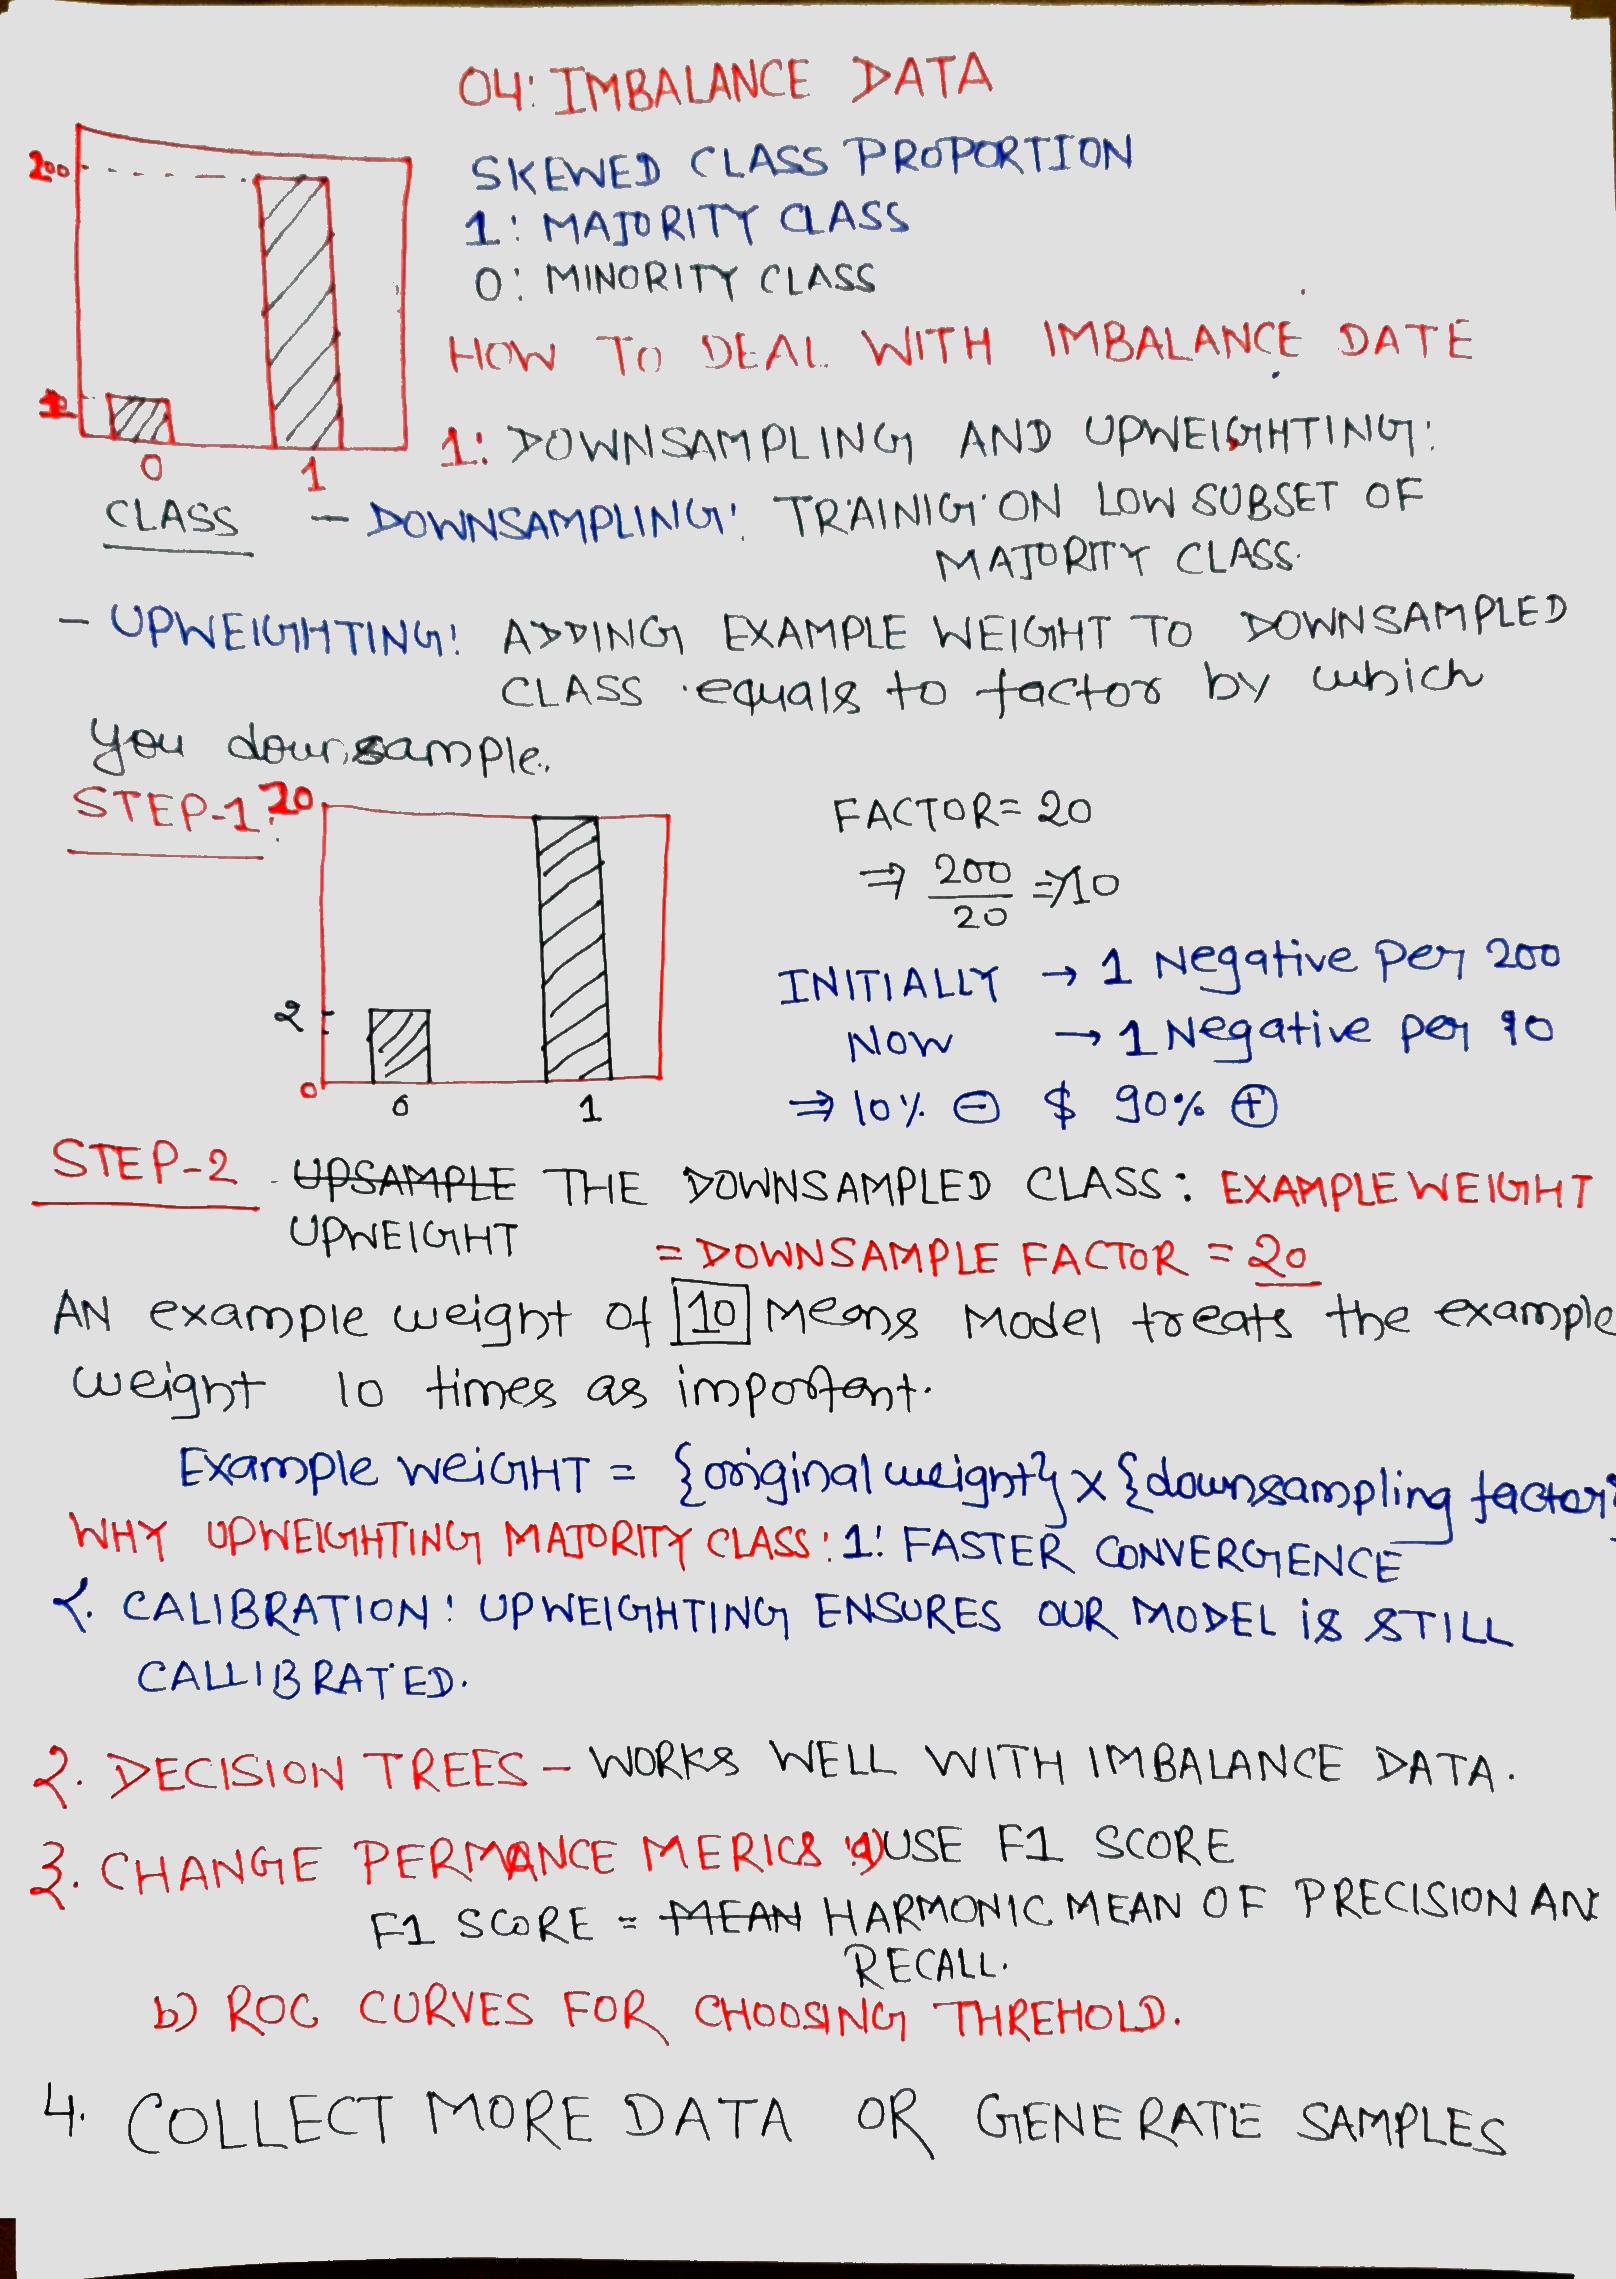 04: IMBALANCE DATA
200
SKEWED CLASS PROPORTION
1: MAJORITY CLASS
0: MINORITY CLASS
HOW TO DEAL WITH IMBALANCE DATE
0 1
CLASS
1: DOWNSAMPLING AND UPWEIGHTING:
- DOWNSAMPLING: TRAINIG ON LOW SUBSET OF
MAJORITY CLASS.
- UPWEIGHTING: ADDING EXAMPLE WEIGHT TO DOWNSAMPLED
CLASS equals to factor by which
you downsample.
STEP-1:
20
2
0
0 1
FACTOR = 20
⇒ 200/20 ⇒ 10
INITIALLY → 1 Negative per 200
NOW → 1 Negative per 10
⇒ 10% ⊖ $ 90% ⊕
STEP-2 UPSAMPLE THE DOWNSAMPLED CLASS: EXAMPLE WEIGHT
UPWEIGHT = DOWNSAMPLE FACTOR = 20
AN example weight of 10 Means Model treats the example
weight 10 times as important.
Example WEIGHT = {original weight} x {downsampling factor}
WHY UPWEIGHTING MAJORITY CLASS: 1: FASTER CONVERGENCE
2. CALIBRATION: UPWEIGHTING ENSURES OUR MODEL is STILL
CALLIBRATED.
2. DECISION TREES - WORKS WELL WITH IMBALANCE DATA.
3. CHANGE PERMANCE MERICS: a) USE F1 SCORE
F1 SCORE = MEAN HARMONIC MEAN OF PRECISION AN
RECALL.
b) ROC CURVES FOR CHOOSING THREHOLD.
4. COLLECT MORE DATA OR GENERATE SAMPLES